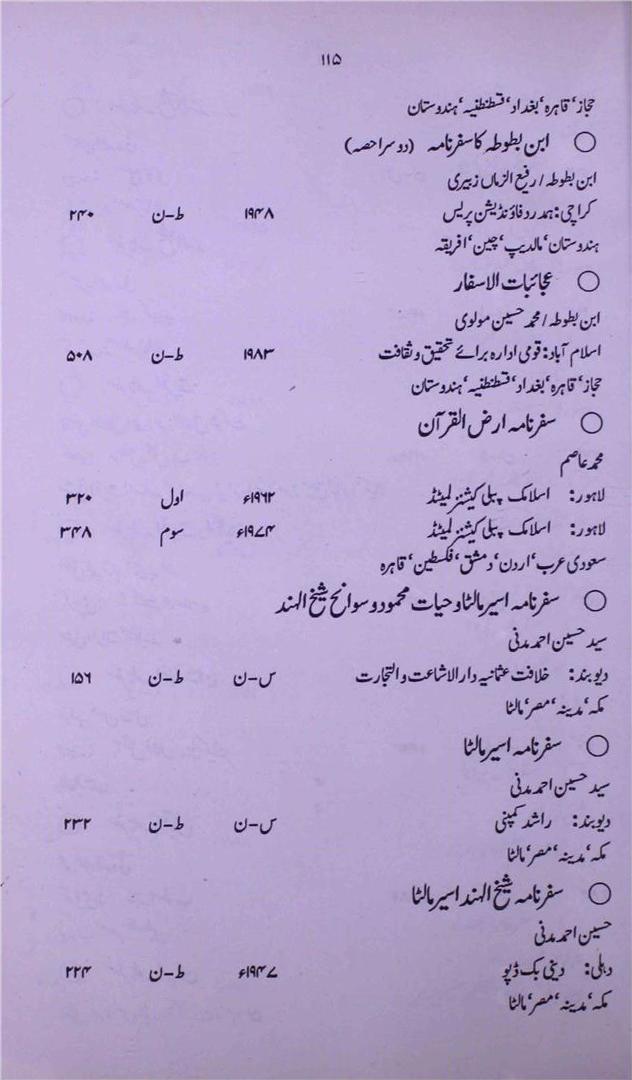 ۱۱۵
حجاز، قاہرہ، بغداد، قسطنطنیہ، ہندوستان
○ ابن بطوطہ کا سفرنامہ (دوسرا حصہ)
ابن بطوطہ / رفیع الزماں زبیری
کراچی: ہمدرد فاؤنڈیشن پریس ۱۹۴۸ ط-ن ۲۴۰
ہندوستان، مالدیپ، چین، افریقہ
○ عجائبات الاسفار
ابن بطوطہ / محمد حسین مولوی
اسلام آباد: قومی ادارہ برائے تحقیق و ثقافت ۱۹۸۳ ط-ن ۵۰۸
حجاز، قاہرہ، بغداد، قسطنطنیہ، ہندوستان
○ سفرنامہ ارض القرآن
محمد عاصم
لاہور: اسلامک پبلی کیشنز لمیٹڈ ۱۹۶۲ء اول ۳۲۰
لاہور: اسلامک پبلی کیشنز لمیٹڈ ۱۹۷۴ء سوم ۳۴۸
سعودی عرب، اردن، دمشق، فلسطین، قاہرہ
○ سفرنامہ اسیر مالٹا و حیات محمود و سوانح شیخ الہند
سید حسین احمد مدنی
دیوبند: خلافت عثمانیہ دار الاشاعت والتجارت س-ن ط-ن ۱۵۶
مکہ، مدینہ، مصر، مالٹا
○ سفرنامہ اسیر مالٹا
سید حسین احمد مدنی
دیوبند: راشد کمپنی س-ن ط-ن ۲۳۲
مکہ، مدینہ، مصر، مالٹا
○ سفرنامہ شیخ الہند اسیر مالٹا
حسین احمد مدنی
دہلی: دینی بک ڈپو ۱۹۴۷ء ط-ن ۲۲۴
مکہ، مدینہ، مصر، مالٹا